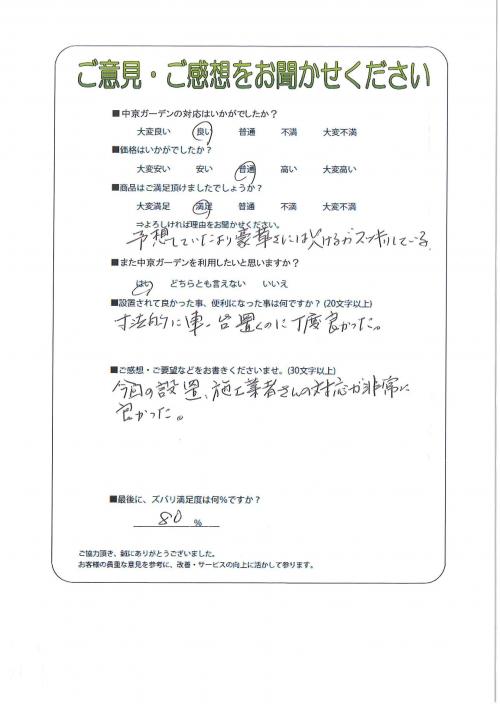 ご意見・ご感想をお聞かせください
■中京ガーデンの対応はいかがでしたか?
大変良い 良い 普通 不満 大変不満
■価格はいかがでしたか?
大変安い 安い 普通 高い 大変高い
■商品はご満足頂けましたでしょうか?
大変満足 満足 普通 不満 大変不満
⇒よろしければ理由をお聞かせください。
予想していたより豪華さには欠けるがスッキリしている
■また中京ガーデンを利用したいと思いますか?
はい どちらとも言えない いいえ
■設置されて良かった事、便利になった事は何ですか? (20文字以上)
寸法的に車一台置くのに丁度良かった。
■ご感想・ご要望などをお書きくださいませ。(30文字以上)
今回の設置、施工業者さんの対応が非常に
良かった。
■最後に、ズバリ満足度は何%ですか?
80 %
ご協力頂き、誠にありがとうございました。
お客様の貴重な意見を参考に、改善・サービスの向上に活かして参ります。